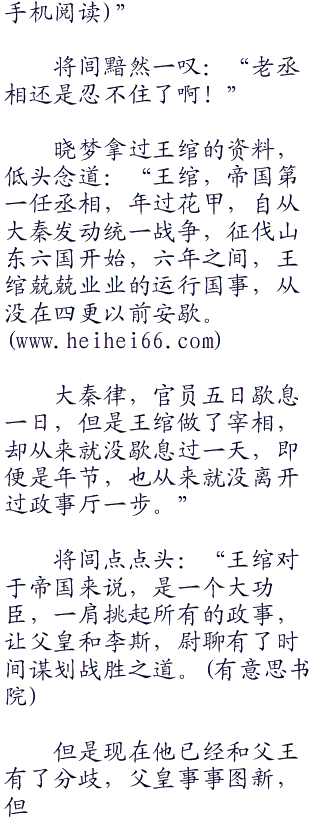 手机阅读)”
将闾黯然一叹：“老丞
相还是忍不住了啊！”
晓梦拿过王绾的资料，
低头念道：“王绾，帝国第
一任丞相，年过花甲，自从
大秦发动统一战争，征伐山
东六国开始，六年之间，王
绾兢兢业业的运行国事，从
没在四更以前安歇。
(www.heihei66.com)
大秦律，官员五日歇息
一日，但是王绾做了宰相，
却从来就没歇息过一天，即
便是年节，也从来就没离开
过政事厅一步。”
将闾点点头：“王绾对
于帝国来说，是一个大功
臣，一肩挑起所有的政事，
让父皇和李斯，尉聊有了时
间谋划战胜之道。(有意思书
院)
但是现在他已经和父王
有了分歧，父皇事事图新，
但